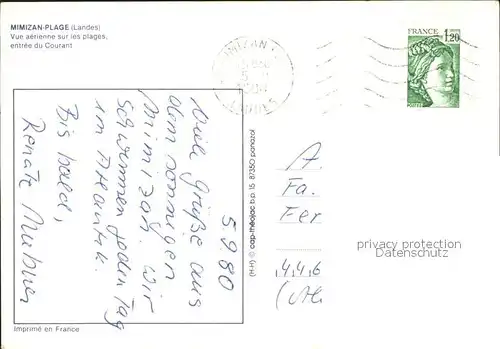 MIMIZAN-PLAGE (Landes)
Vue aérienne sur les plages,
entrée du Courant
MIMIZAN
LANDES
FRANCE
1,20
POSTES
5.9.80
Viele Grüße aus
dem sonnigen
Mimizan. Wir
schwimmen jeden Tag
im Atlantik.
Bis bald,
Renate
(H-H) © cap-théojac b.p. 15 87350 panazol
A.
Fa.
Fer
4.4.6
privacy protection
Datenschutz
Imprimé en France